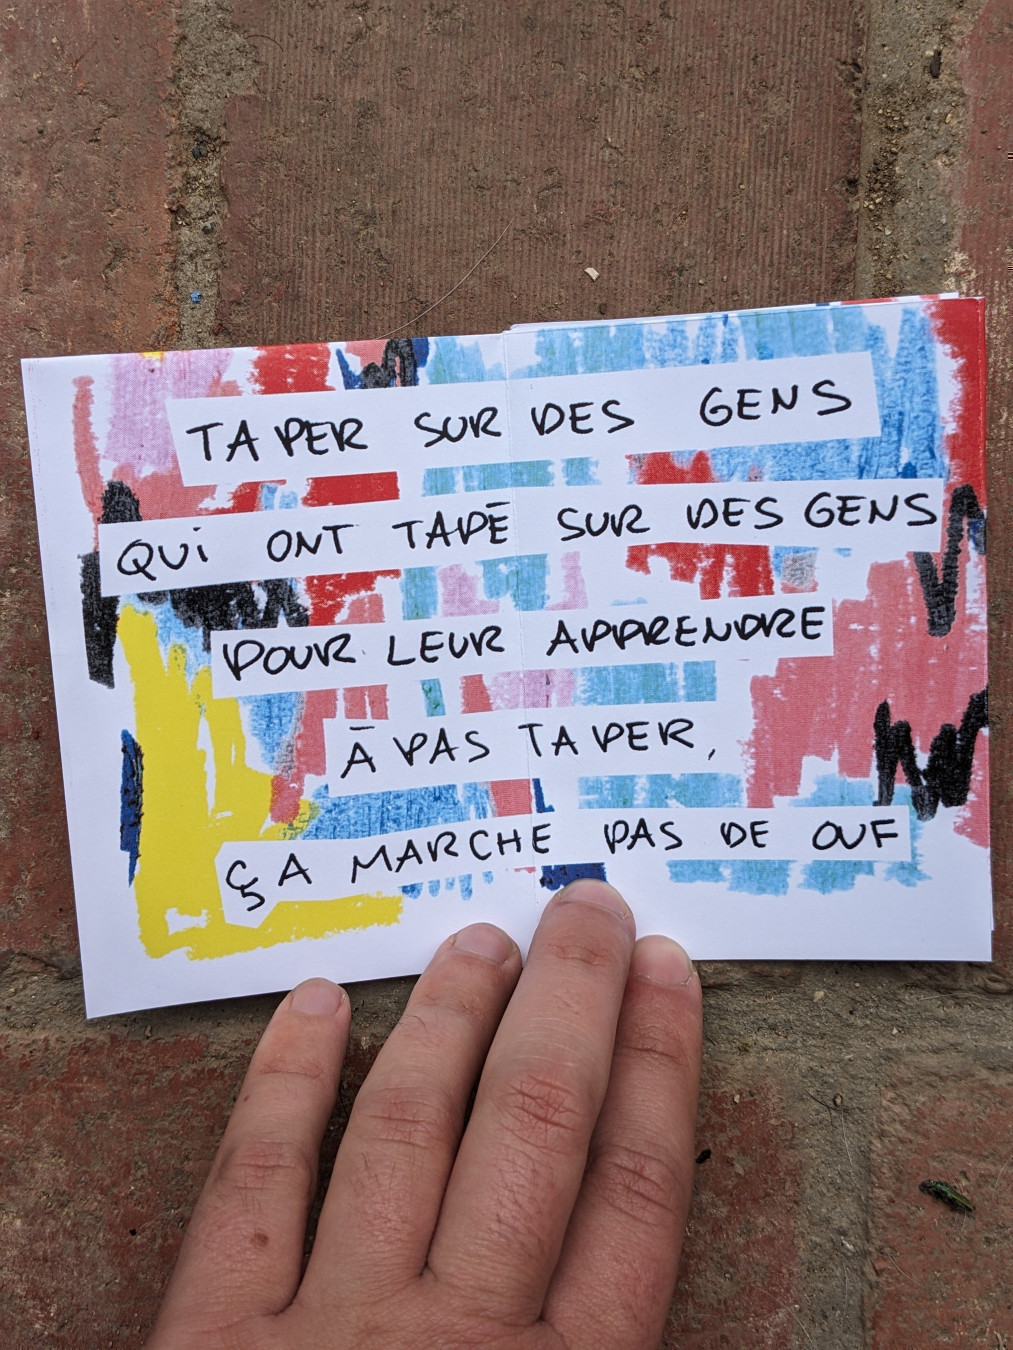 TAPER SUR DES GENS
QUi ONT TAPÉ SUR DES GENS
POUR LEUR APPRENDRE
À PAS TAPER,
ÇA MARCHE PAS DE OUF